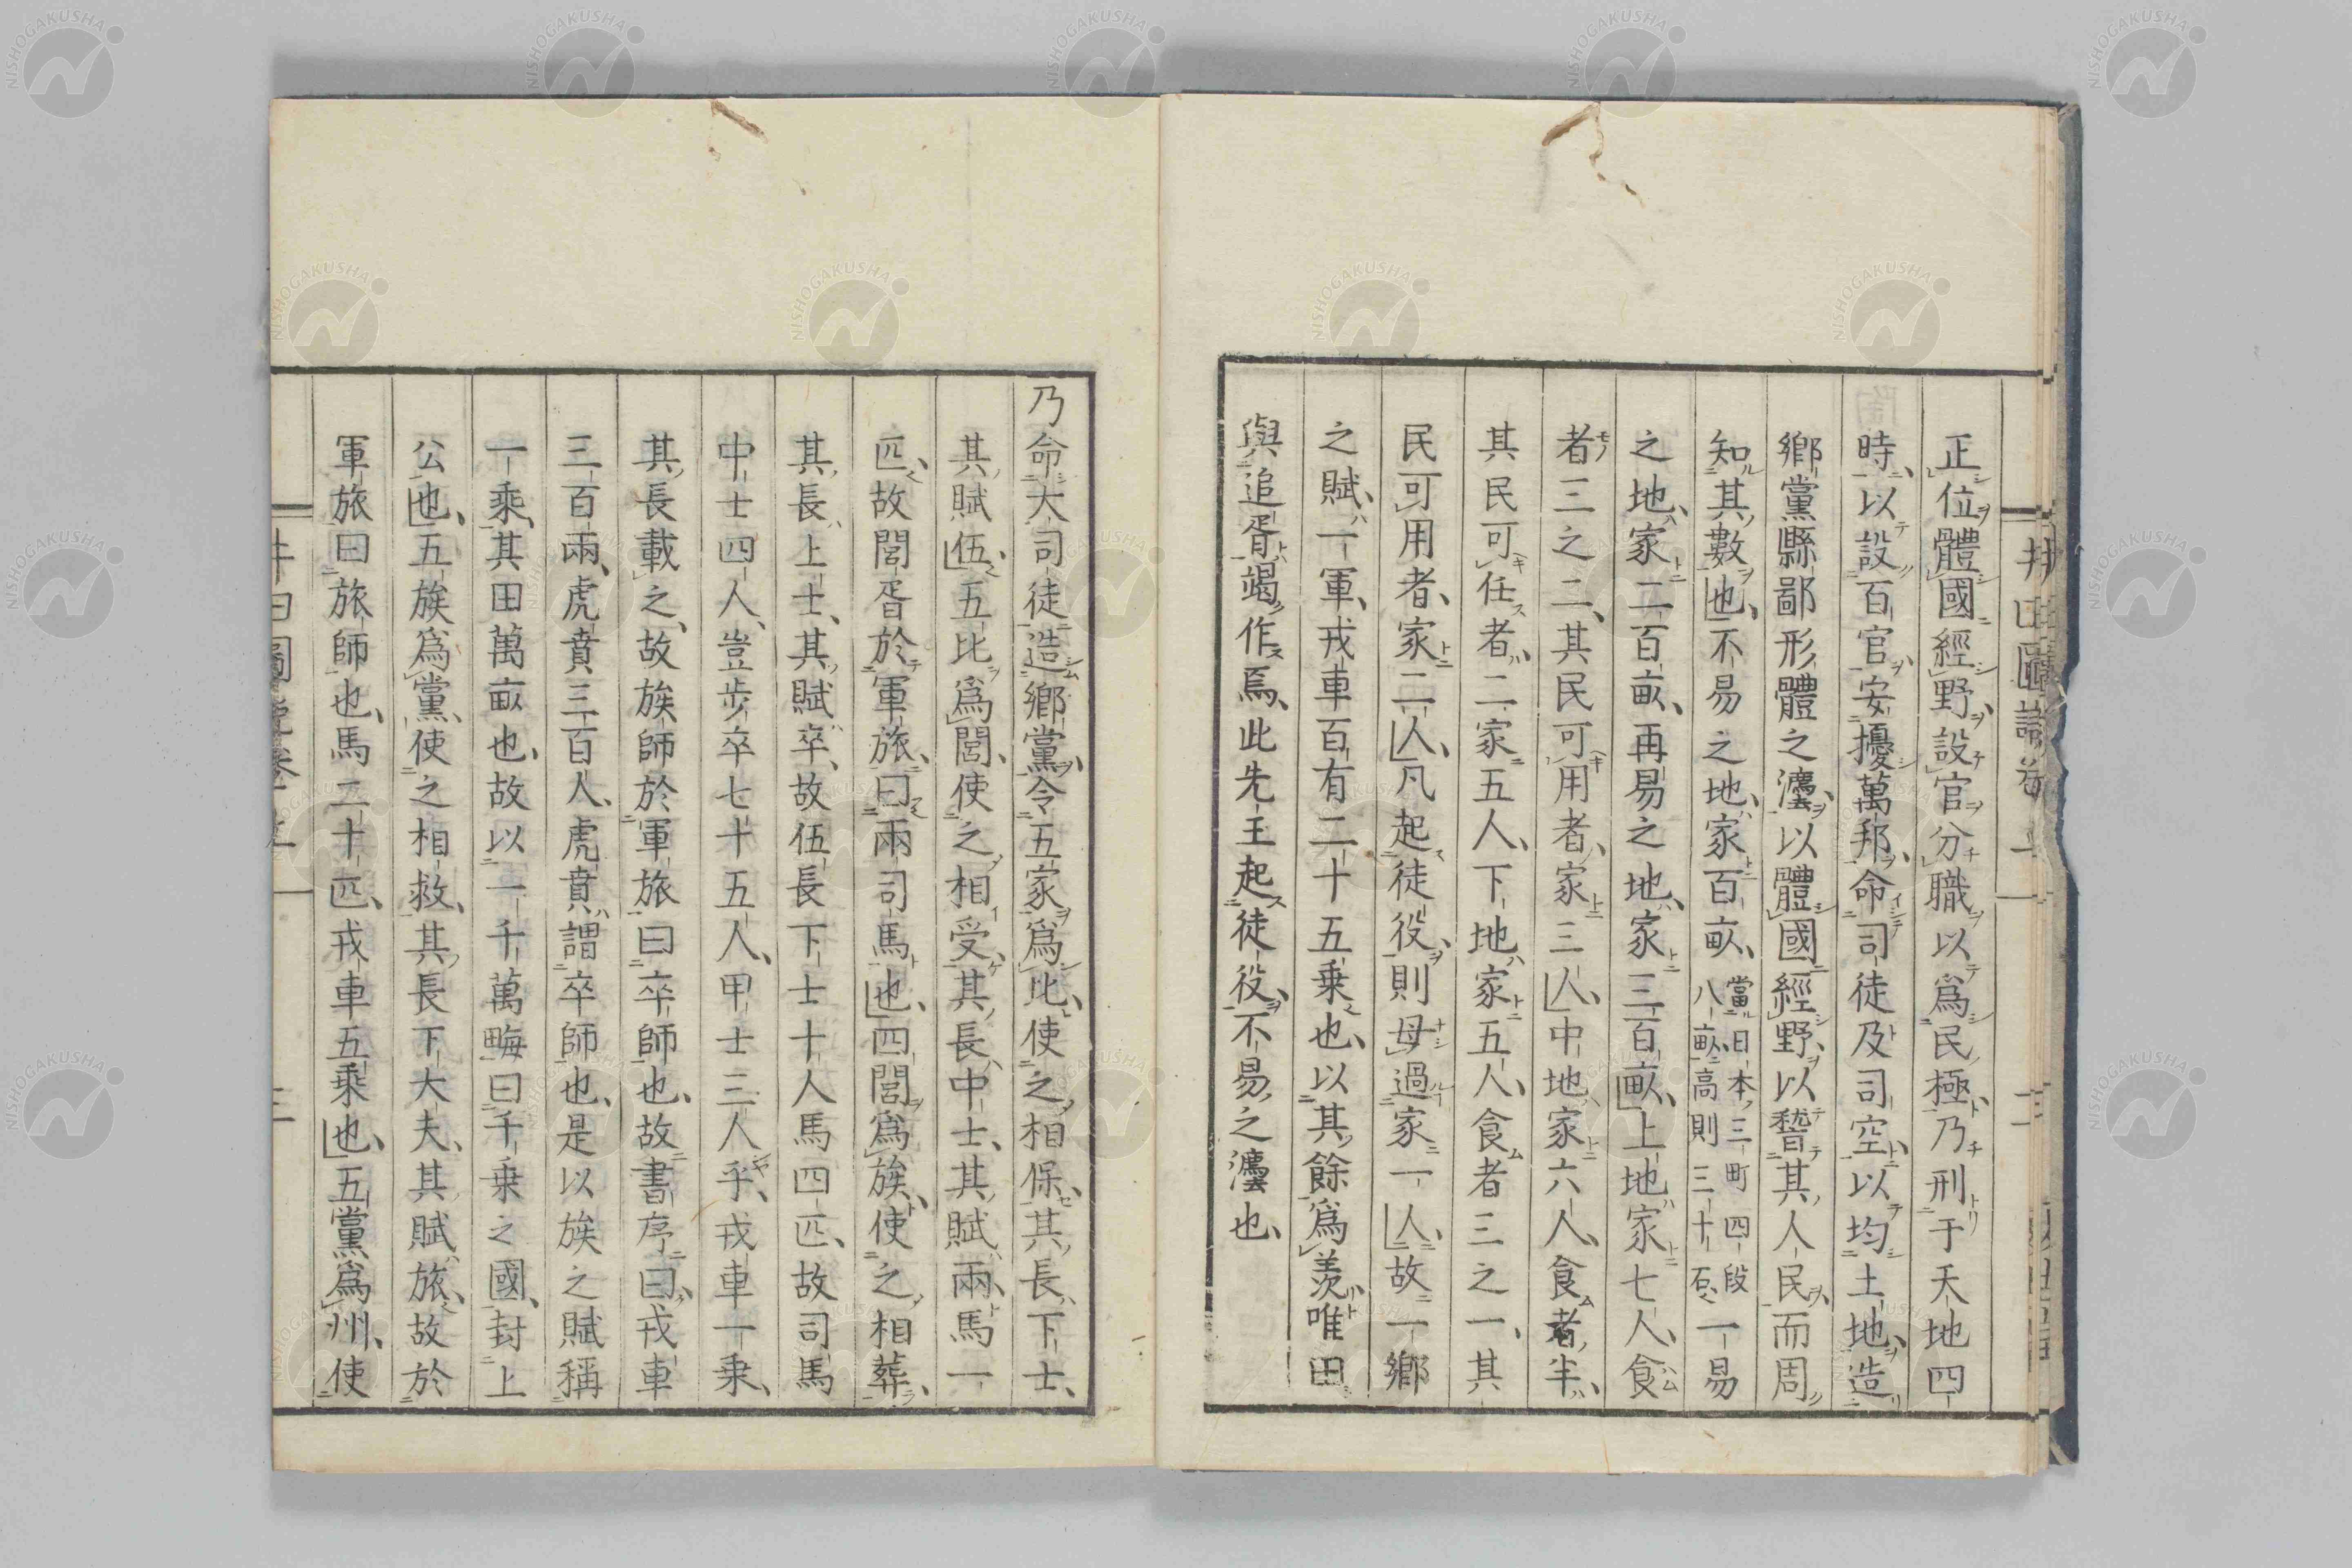 正位體國經野設官分職以爲民極乃刑于天地四
時以設百官安擾萬邦命司徒及司空以均土地造
鄉黨縣鄙形體之灋以體國經野以稽其人民而周
知其數也不易之地家百畝當日本三町四段八畝高則三十石一易
之地家二百畝再易之地家三百畝上地家七人食
者三之二其民可用者家三人中地家六人食者半
其民可任者二家五人下地家五人食者三之一其
民可用者家二人凡起徒役則毋過家一人故一鄉
之賦一軍戎車百有二十五乗也以其餘爲羨唯田
與追胥竭作焉此先王起徒役不易之灋也
乃命大司徒造鄉黨令五家爲比使之相保其長下士
其賦伍五比爲閭使之相受其長中士其賦兩馬一
匹故閭胥於軍旅曰兩司馬也四閭爲族使之相葬
其長上士其賦卒故伍長下士十人馬四匹故司馬
中士四人豈歩卒七十五人甲士三人乎戎車一乗
其長載之故族師於軍旅曰卒師也故書序曰戎車
三百兩虎賁三百人虎賁謂卒師也是以族之賦稱
一乗其田萬畝也故以一千萬畮曰千乗之國封上
公也五族爲黨使之相救其長下大夫其賦旅故於
軍旅曰旅師也馬二十匹戎車五乗也五黨爲州使
NISHOGAKUSHA